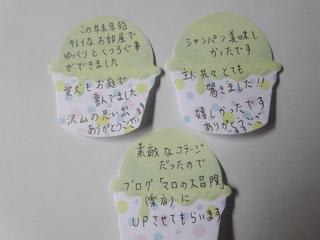 この年末年始
キレイなお部屋で
ゆっくりとくつろぐ事
ができました
愛犬もお庭で
喜んでました
沢山の思い出
ありがとうございます
シャンパン美味し
かったです
主人共々とても
驚きました!!
嬉しかったです
ありがとうございます
素敵なコテージ
だったので
ブログ「マロの大冒険」
(楽店)に
UPさせてもらいます